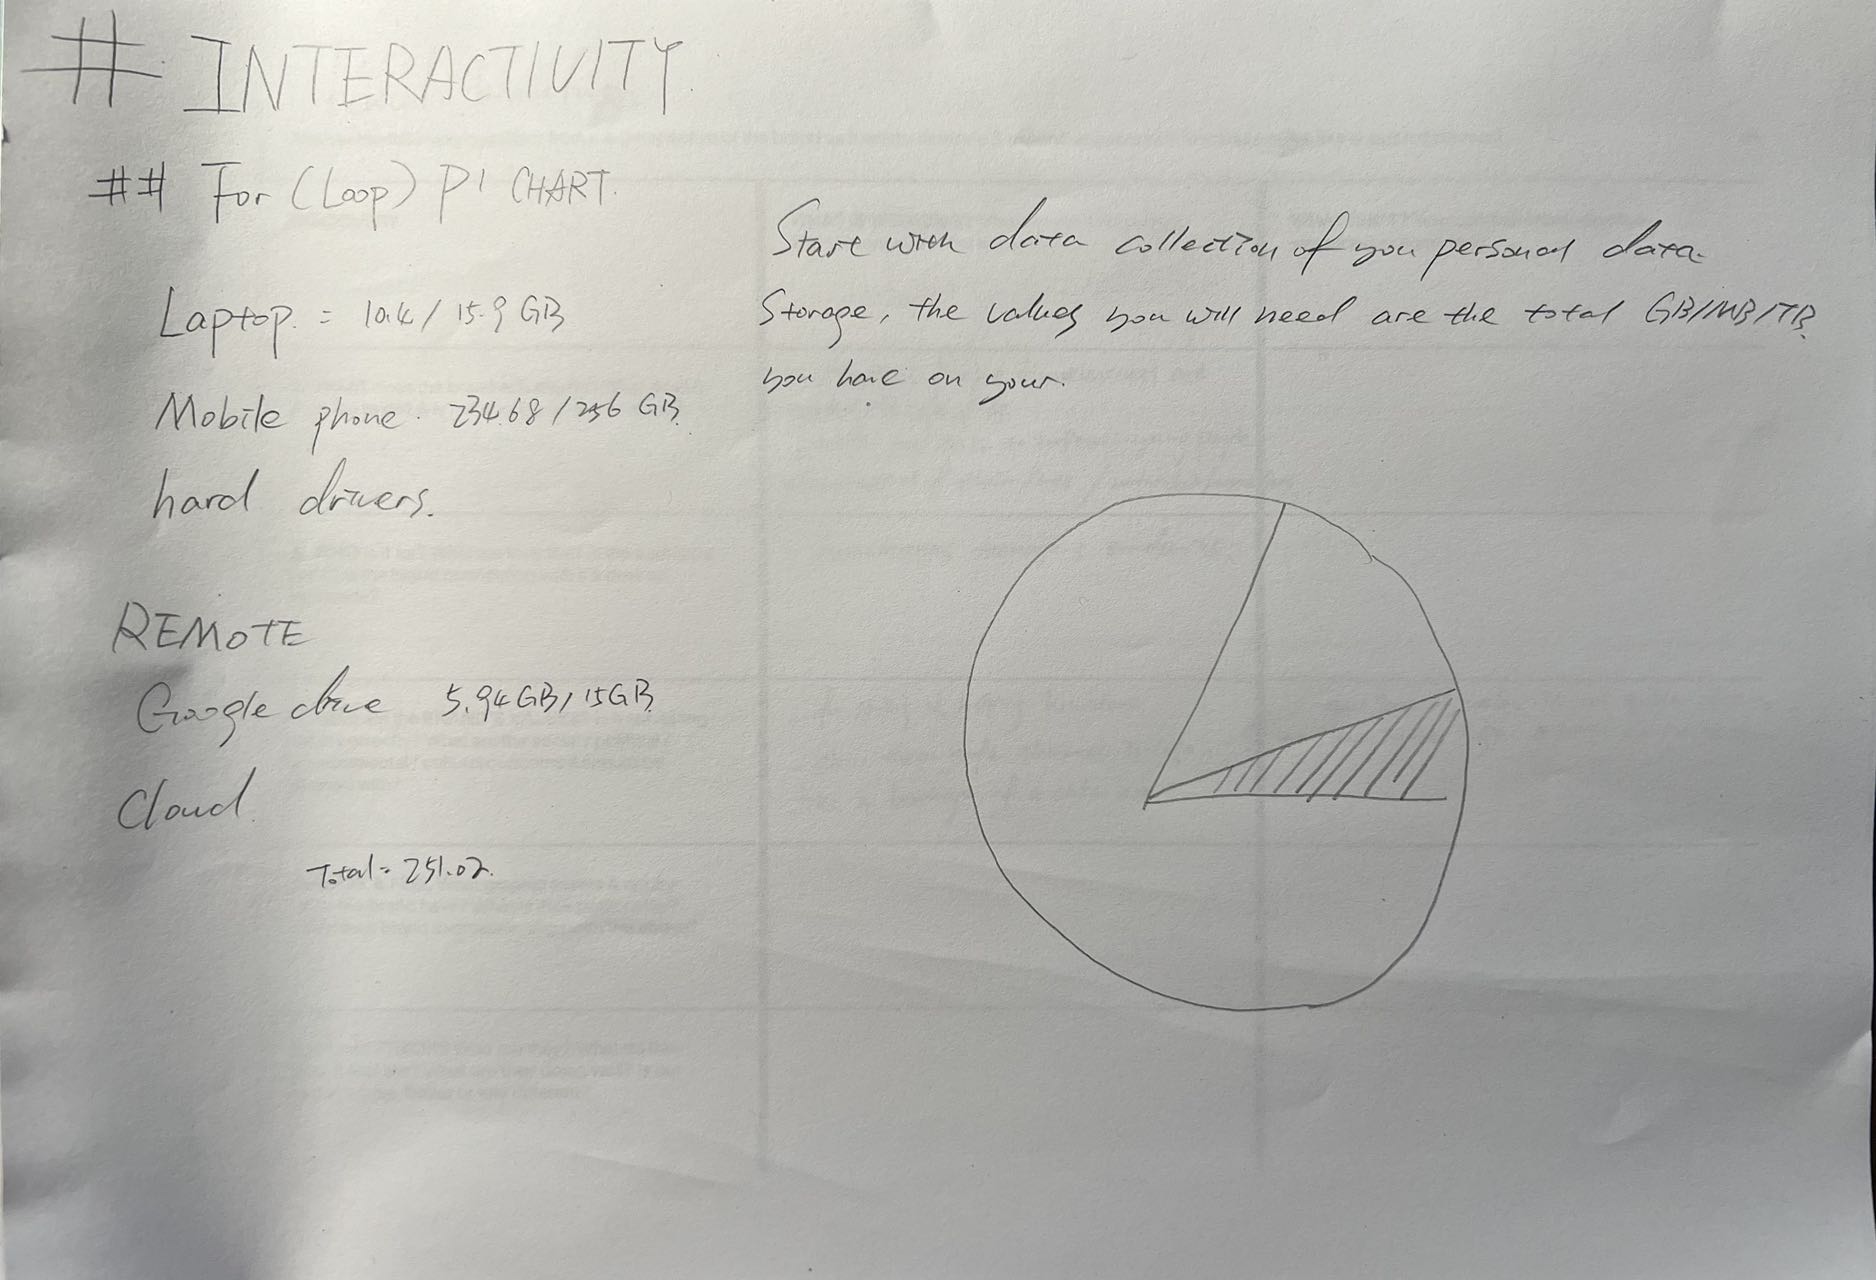 # INTERACTIVITY
## For (Loop) PI CHART.
Laptop. = 10.4 / 15.9 GB
Mobile phone. 234.68 / 256 GB.
hard drivers.
REMOTE
Google drive 5.94GB / 15GB
Cloud.
Total = 251.02.
Start with data collection of you personal data.
Storage, the values you will need are the total GB/MB/TB.
you have on your.